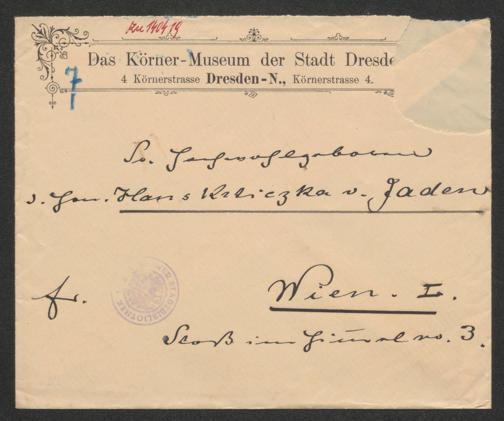 7
Das Körner-Museum der Stadt Dresde
4 Körnerstrasse Dresden-N., Körnerstrasse 4.
Sr. Hochwohlgeboren
v. Hrn. Hans Krticzka v. Jaden
fr.
Wien. I.
Stoß im Himmel No. 3.
STADTBIBLIOTHEK